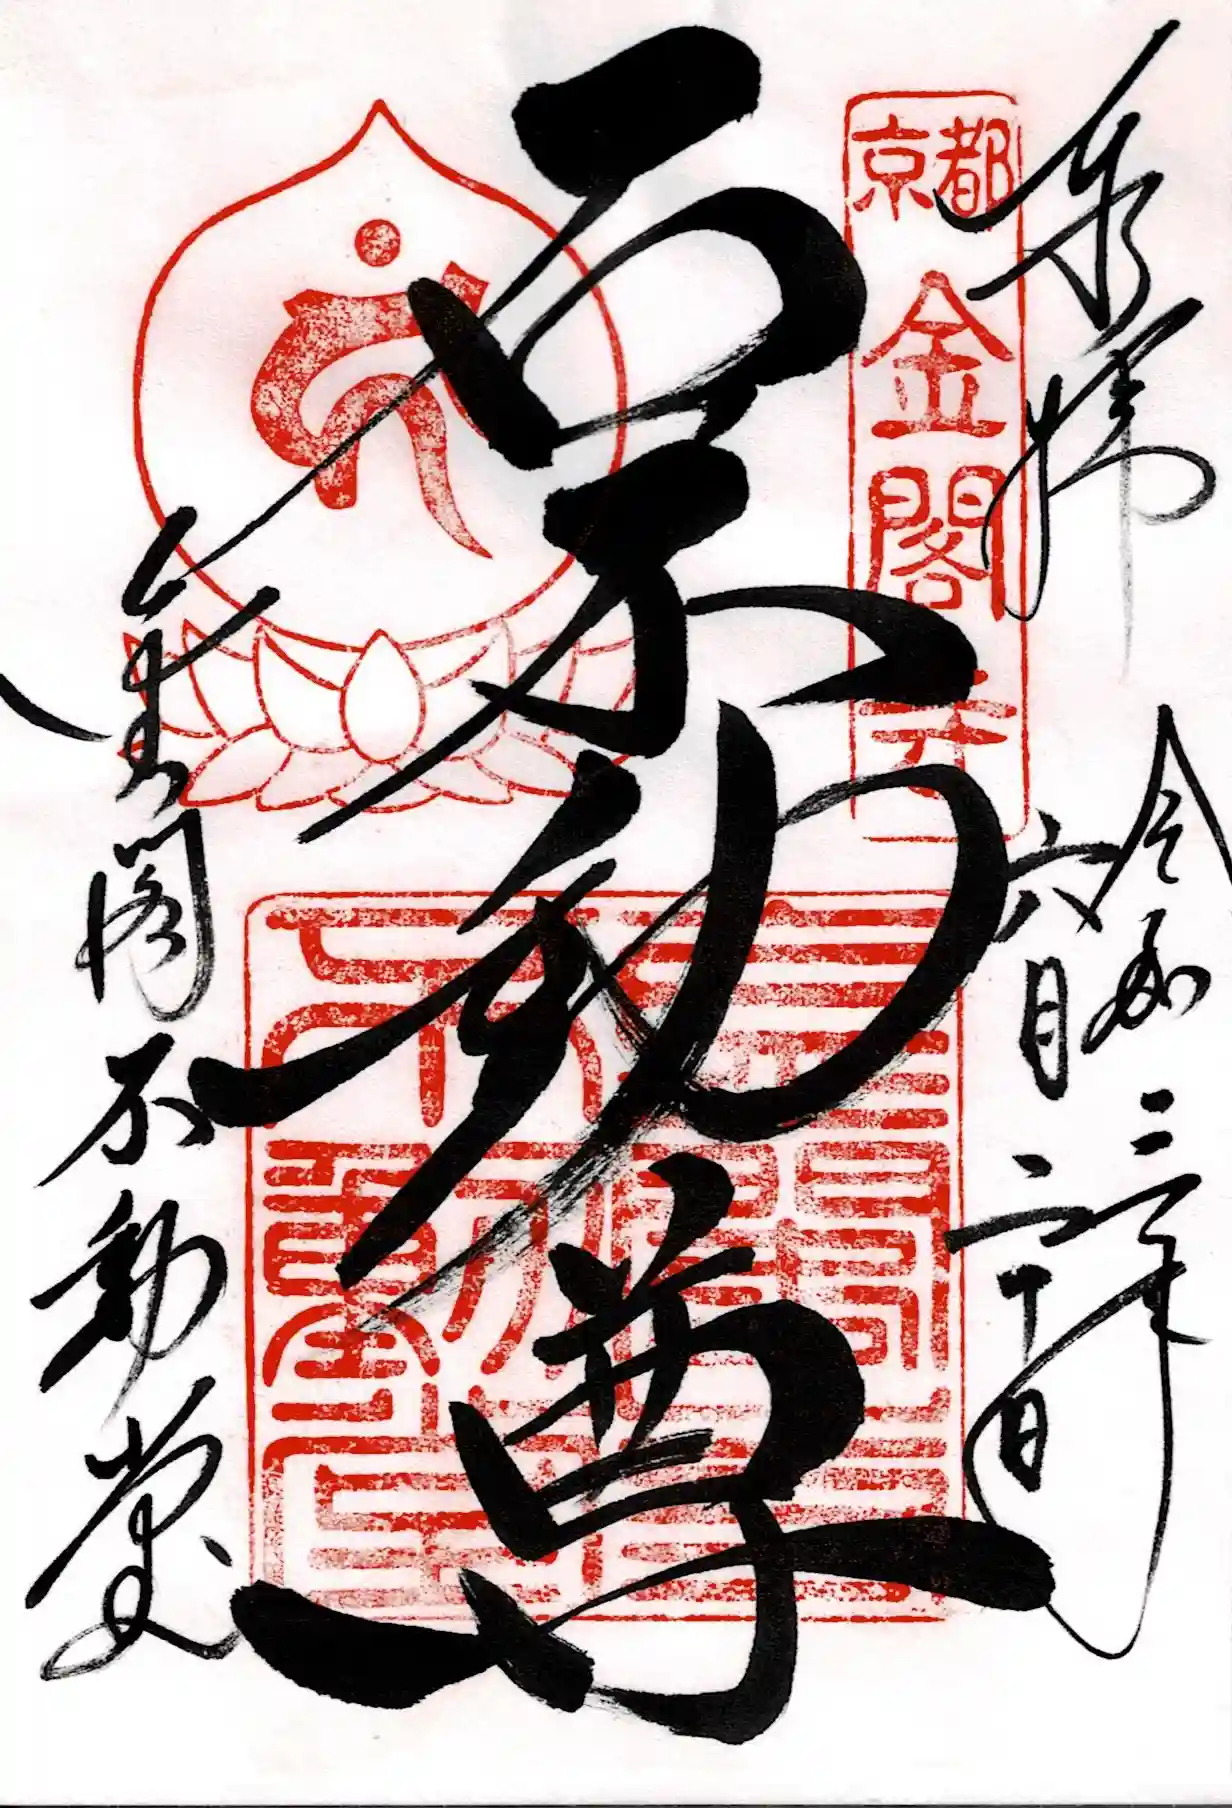 奉拝
令和三年
六月二十日
京都
金閣寺
石不動尊
金閣不動堂